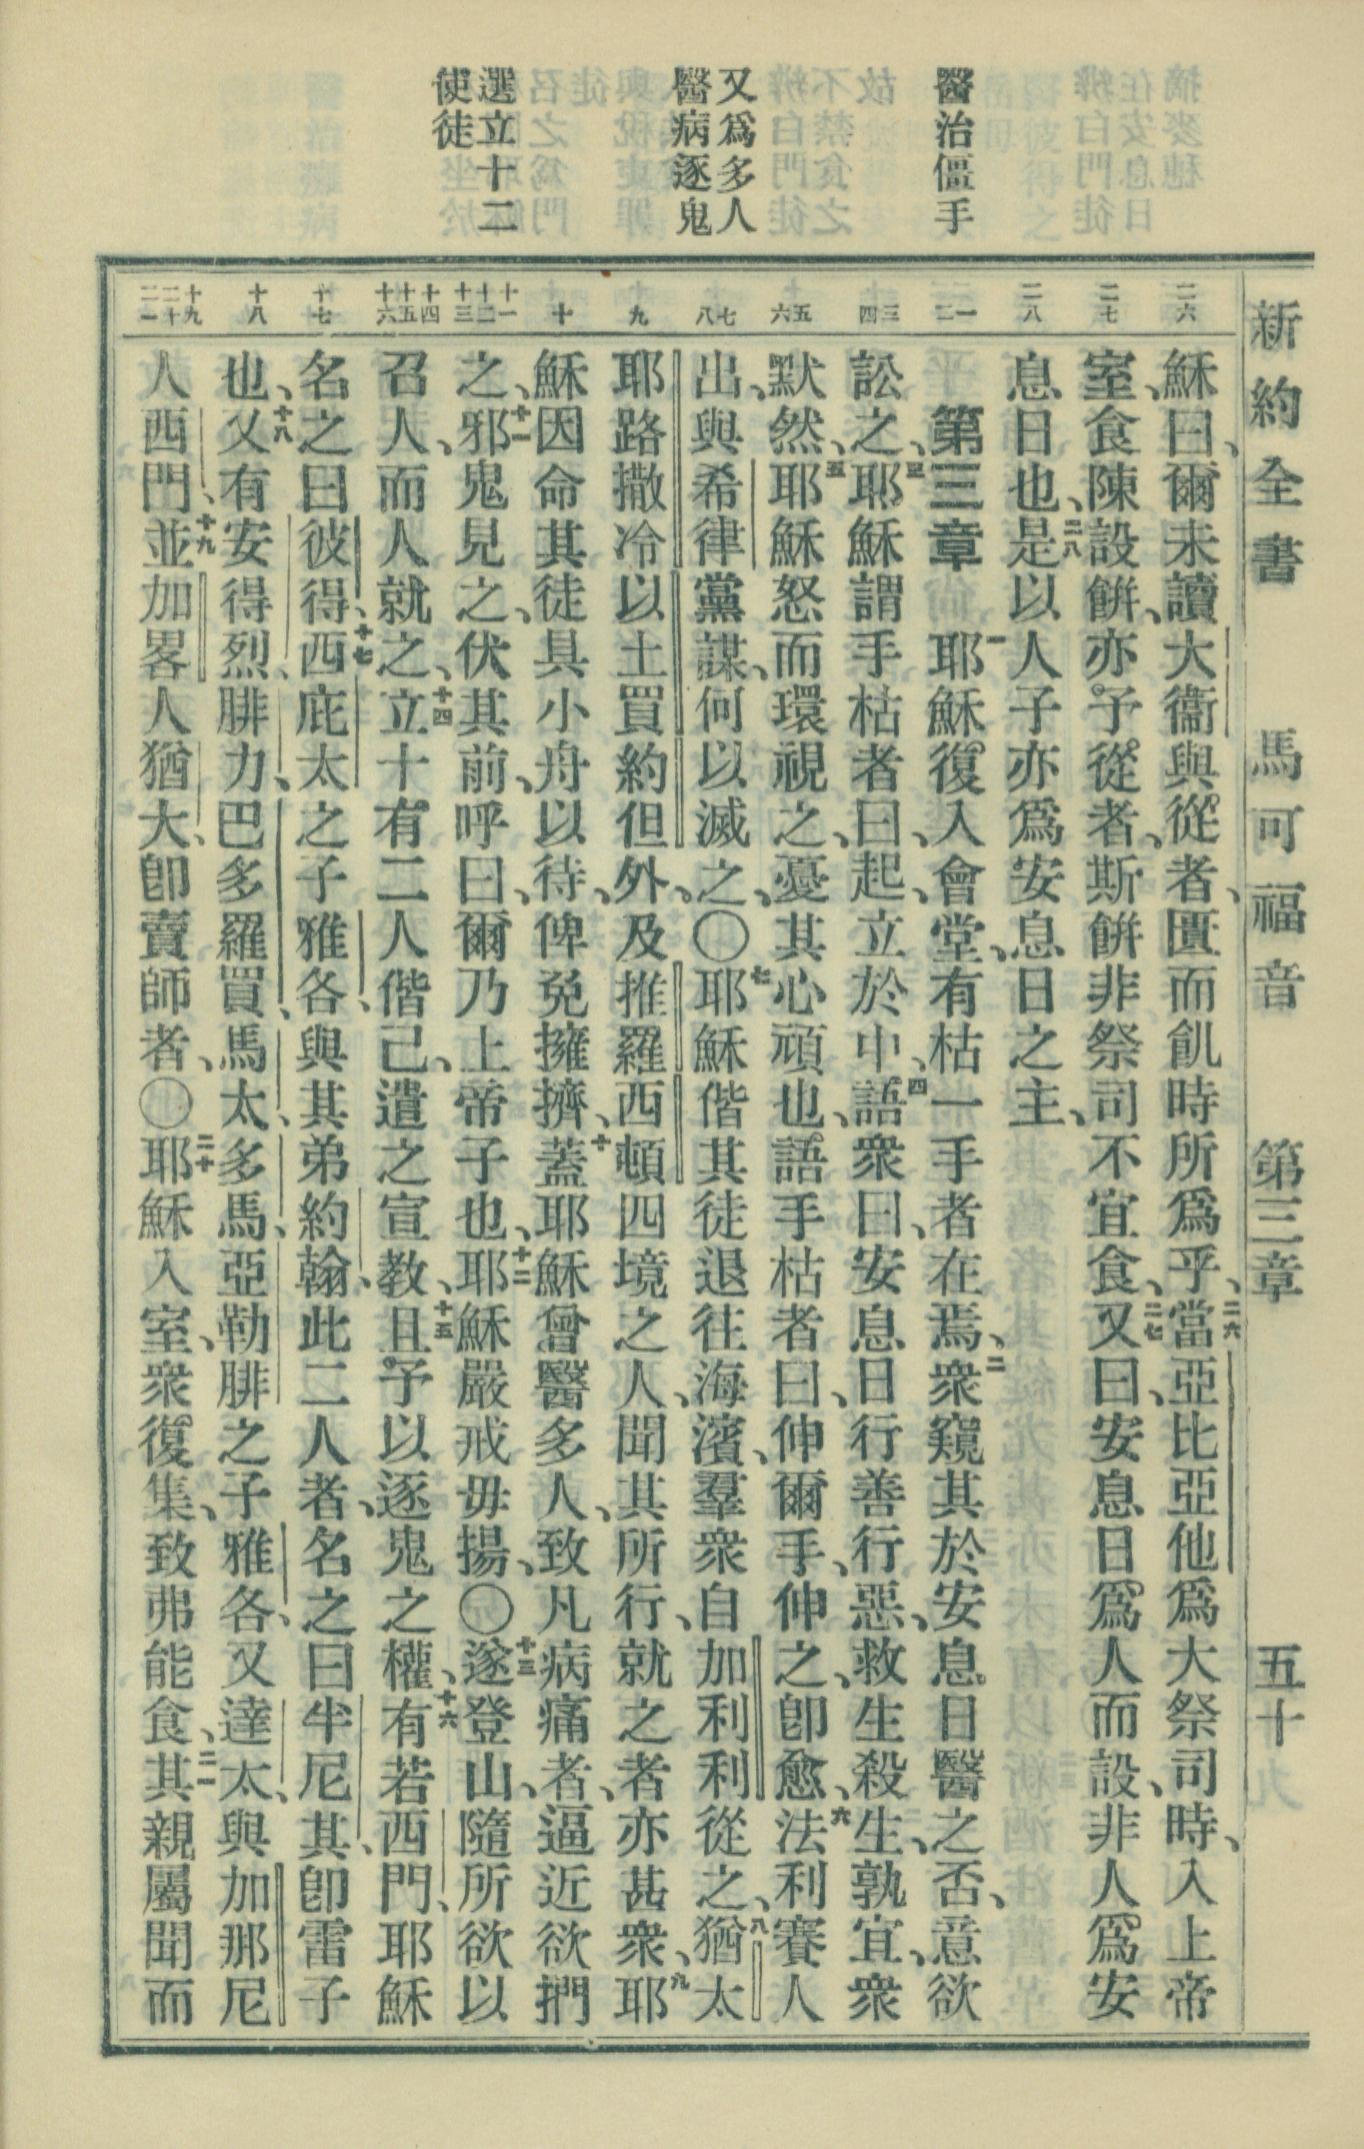 新約全書 馬可福音 第三章 五十
醫治僵手
又爲多人
醫病逐鬼
選立十二
使徒
二六
二七
二八
一二
三四
五六
七八
九
十
十一十二十三
十四十五十六
十七
十八
十九二十二一
穌曰、爾未讀大衞與從者、匱而飢時所爲乎、二六當亞比亞他爲大祭司時、入上帝
室、食陳設餅、亦予從者、斯餅非祭司不宜食、二七又曰、安息日爲人而設、非人爲安
息日也、二八是以人子亦爲安息日之主、
第三章 一耶穌復入會堂、有枯一手者在焉、二衆窺其於安息日醫之否、意欲
訟之、三耶穌謂手枯者曰、起、立於中、四語衆曰、安息日行善行惡、救生殺生、孰宜、衆
默然、五耶穌怒而環視之、憂其心頑也、語手枯者曰、伸爾手、伸之、卽愈、六法利賽人
出、與希律黨謀、何以滅之、〇七耶穌偕其徒退往海濱、羣衆自加利利從之、八猶太
耶路撒冷以土買約但外、及推羅西頓四境之人、聞其所行、就之者亦甚衆、九耶
穌因命其徒具小舟以待、俾免擁擠、十蓋耶穌曾醫多人、致凡病痛者、逼近欲捫
之、十一邪鬼見之、伏其前、呼曰、爾乃上帝子也、十二耶穌嚴戒毋揚、〇十三遂登山、隨所欲以
召人、而人就之、十四立十有二人偕己、遣之宣教、十五且予以逐鬼之權、十六有若西門、耶穌
名之曰彼得、十七西庇太之子雅各、與其弟約翰、此二人者、名之曰半尼其、卽雷子
也、十八又有安得烈、腓力、巴多羅買、馬太、多馬、亞勒腓之子雅各、又達太、與加那尼
人西門、十九並加畧人猶大、卽賣師者、〇二十耶穌入室、衆復集、致弗能食、二一其親屬聞而